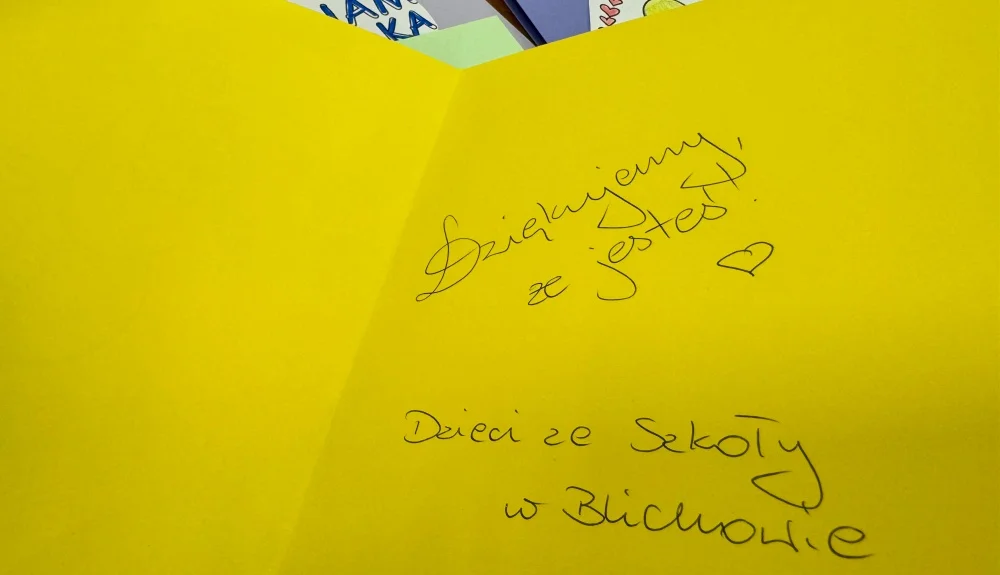 JAM
KA
Dziękujemy,
że jesteś!
Dzieci ze Szkoły
w Blichowie